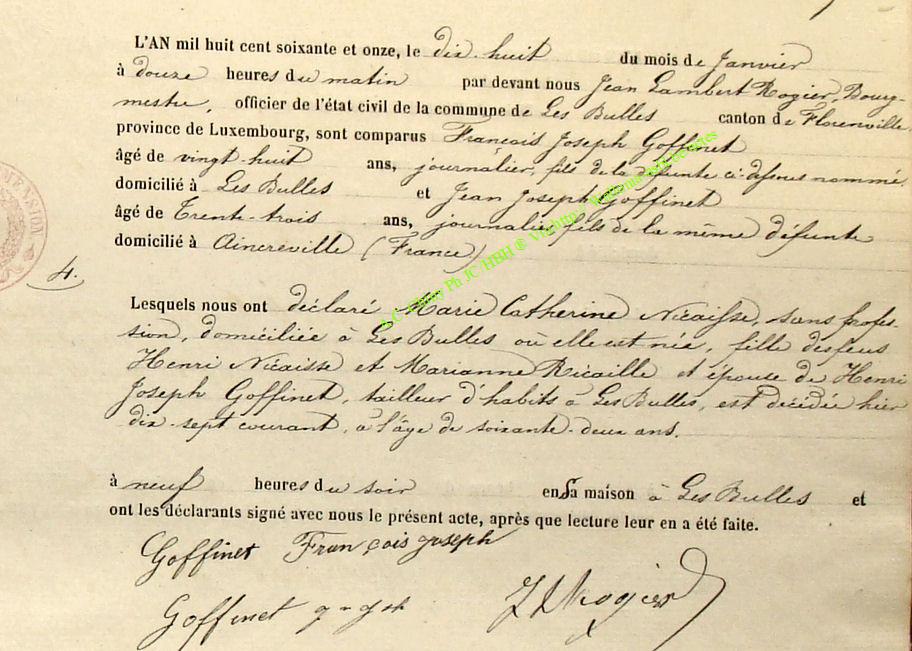 L'AN mil huit cent soixante et onze, le dix-huit du mois de Janvier
à douze heures du matin par devant nous Jean Lambert Rogier, Bourg-
mestre, officier de l'état civil de la commune de Les Bulles canton de Florenville,
province de Luxembourg, sont comparus François Joseph Goffinet
âgé de vingt-huit ans, journalier, fils de la défunte ci-dessous nommé,
domicilié à Les Bulles et Jean Joseph Goffinet
âgé de Trente-trois ans, journalier, fils de la même défunte
domicilié à Aincreville (France)
4.
Lesquels nous ont déclaré Marie Catherine Nicaisse, sans profes-
sion, domiciliée à Les Bulles où elle est née, fille des feus
Henri Nicaisse et Marianne Ricaille et épouse de Henri
Joseph Goffinet, tailleur d'habits à Les Bulles, est décédée hier
dix-sept courant, à l'âge de soixante-deux ans.
à neuf heures du soir en sa maison à Les Bulles et
ont les déclarants signé avec nous le présent acte, après que lecture leur en a été faite.
Goffinet François joseph
Goffinet
JLRogier